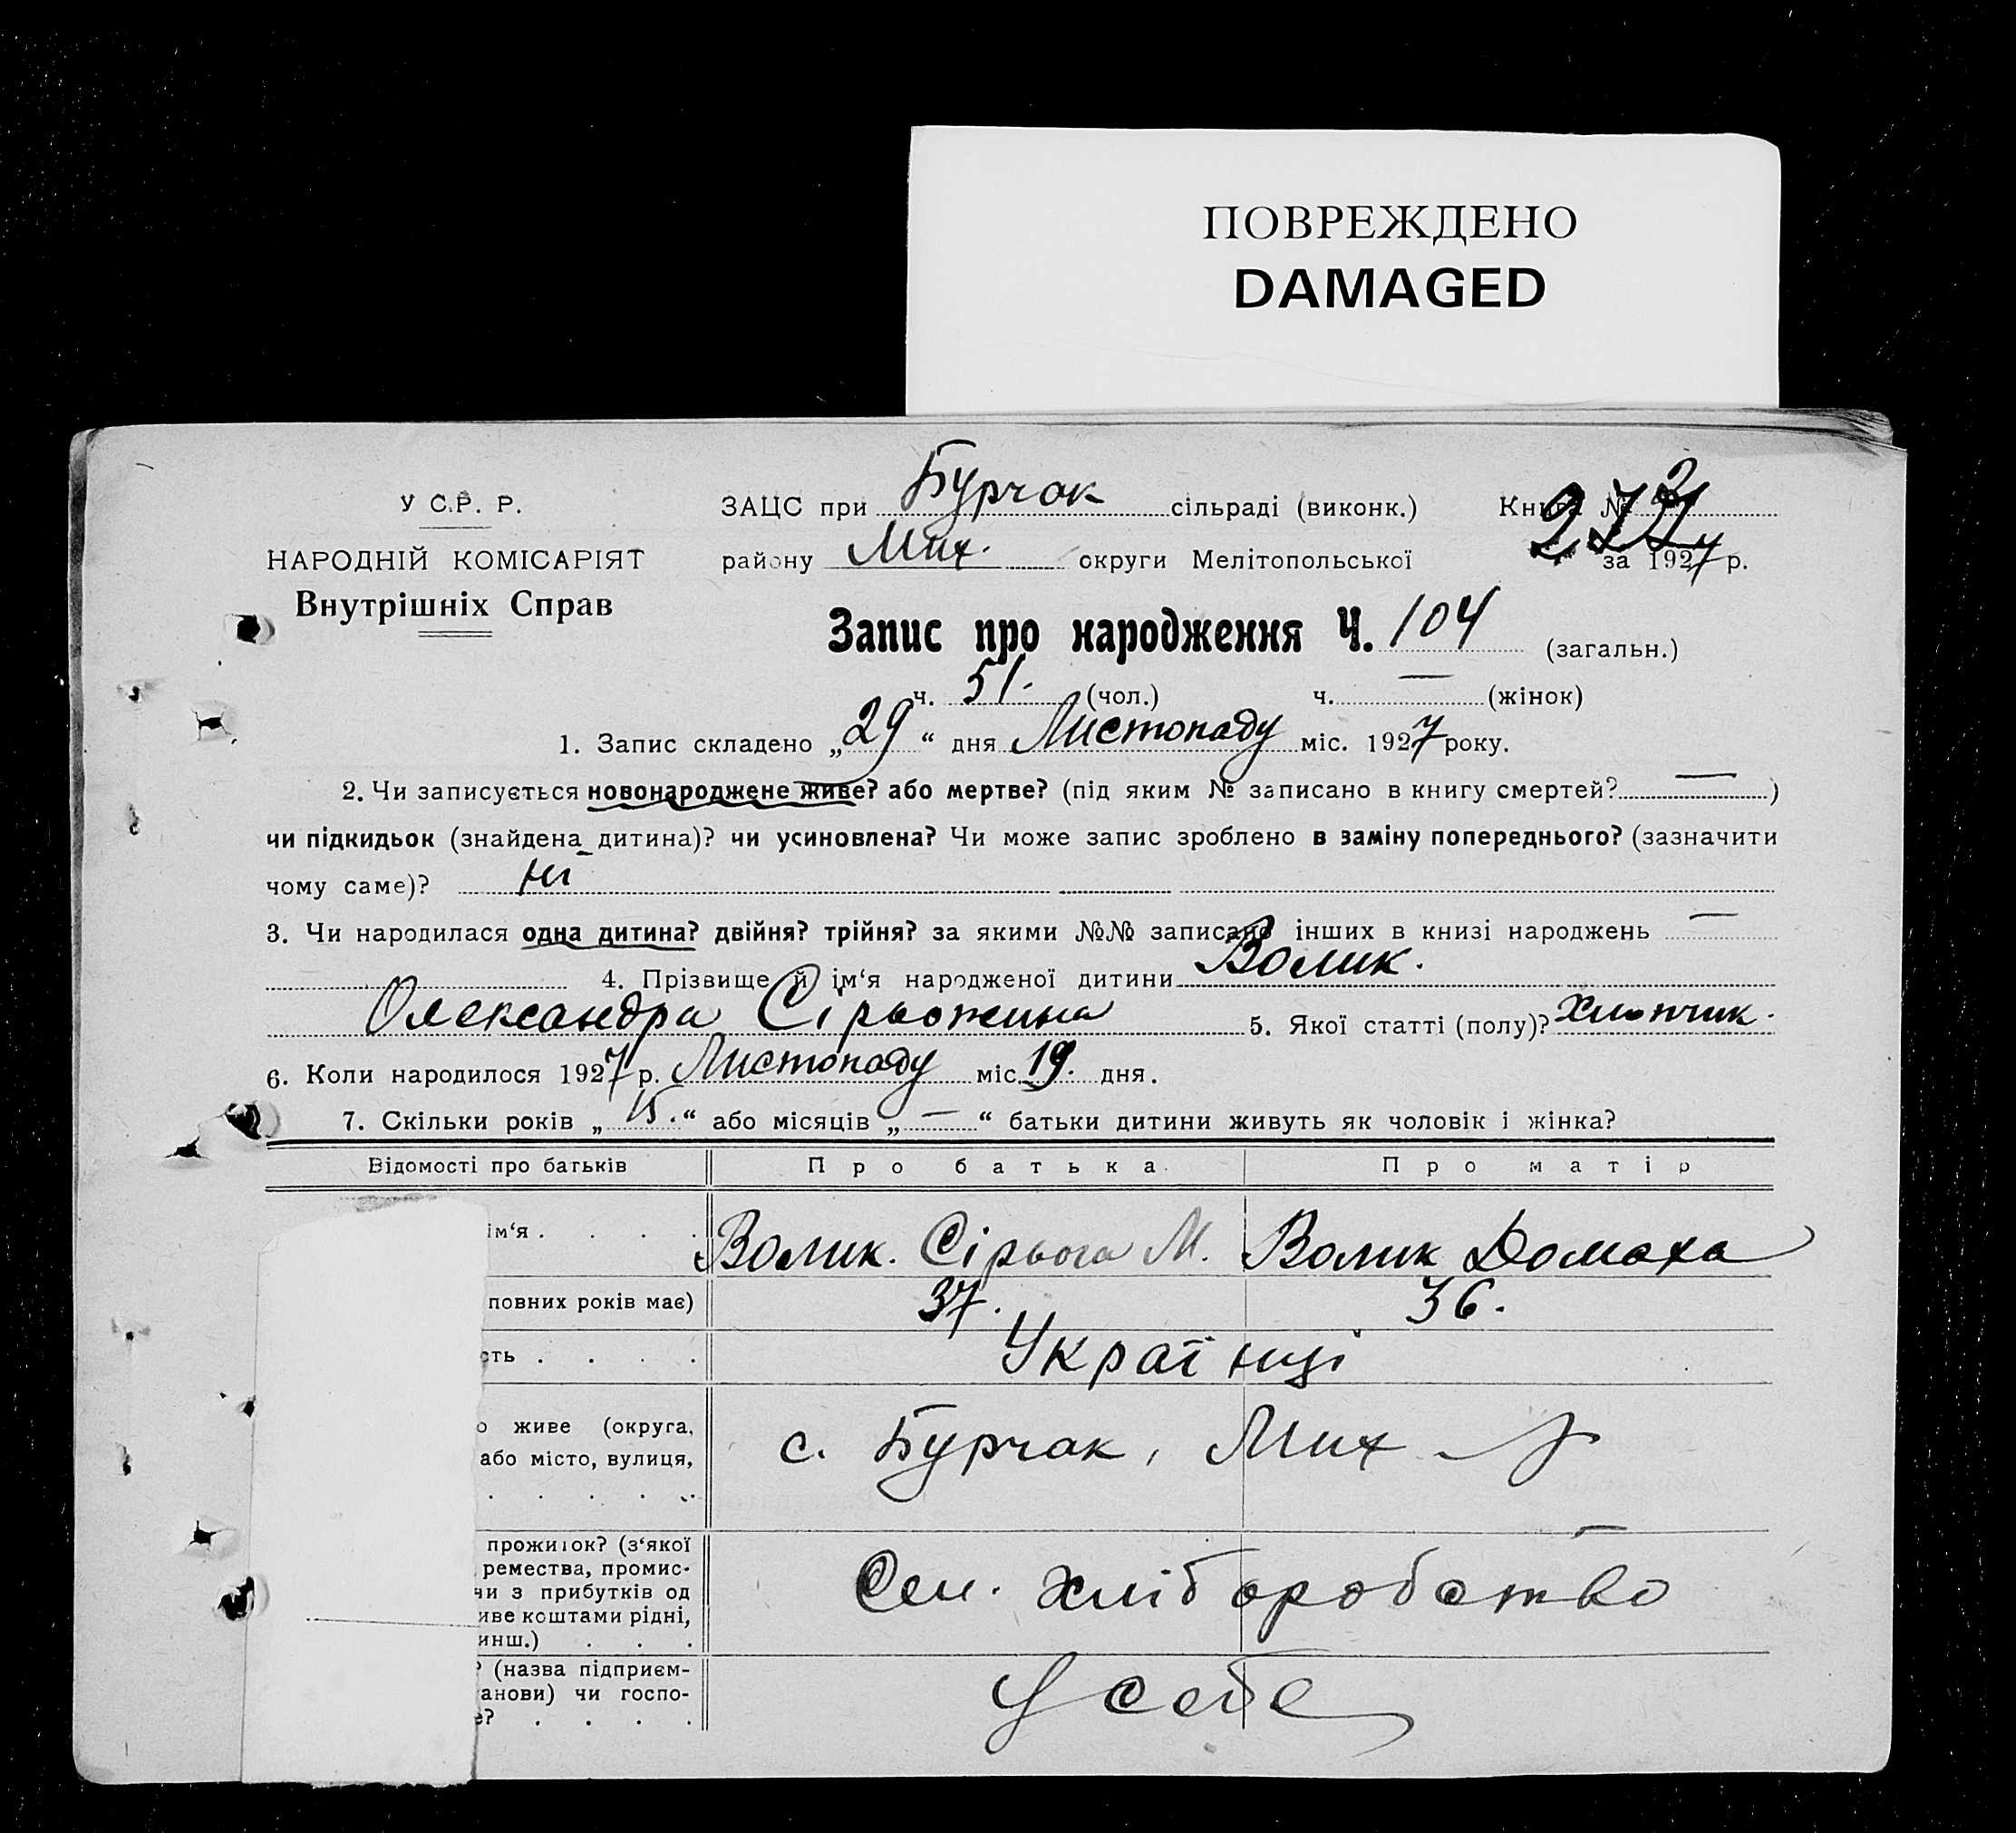 ПОВРЕЖДЕНО
DAMAGED
У С.Р. Р.
НАРОДНІЙ КОМІСАРІЯТ
Внутрішніх Справ
ЗАЦС при Бурчак сільраді (виконк.)
району Мих. округи Мелітопольської
Книга № 2
272
за 1927 р.
Запис про народження Ч. 104 (загальн.)
ч. 51. (чол.) ч. — (жінок)
1. Запис складено „29“ дня Листопаду міс. 1927 року.
2. Чи записується новонароджене живе? або мертве? (під яким № записано в книгу смертей? — )
чи підкидьок (знайдена дитина)? чи усиновлена? Чи може запис зроблено в заміну попереднього? (зазначити
чому саме)? Ні
3. Чи народилася одна дитина? двійня? трійня? за якими №№ записано інших в книзі народжень —
4. Прізвище й ім‘я народженої дитини Волик.
Олександра Сірьожина 5. Якої статті (полу)? хлопчик.
6. Коли народилося 1927 р. Листопаду міс. 19. дня.
7. Скільки років „15.“ або місяців „—“ батьки дитини живуть як чоловік і жінка?
Відомості про батьків Про батька Про матір
ім‘я . . . . Волик. Сірьога М. Волик Домаха
повних років має) 37. 36.
сть . . . . Українці
о живе (округа,
або місто, вулиця, с. Бурчак, Мих р
. . . . .
прожиток? (з‘якої
ремества, промис-
чи з прибутків од Сел. хліборобство
иве коштами рідні,
инш.) . . .
? (назва підприєм-
анови) чи госпо- У себе
е? . . . .